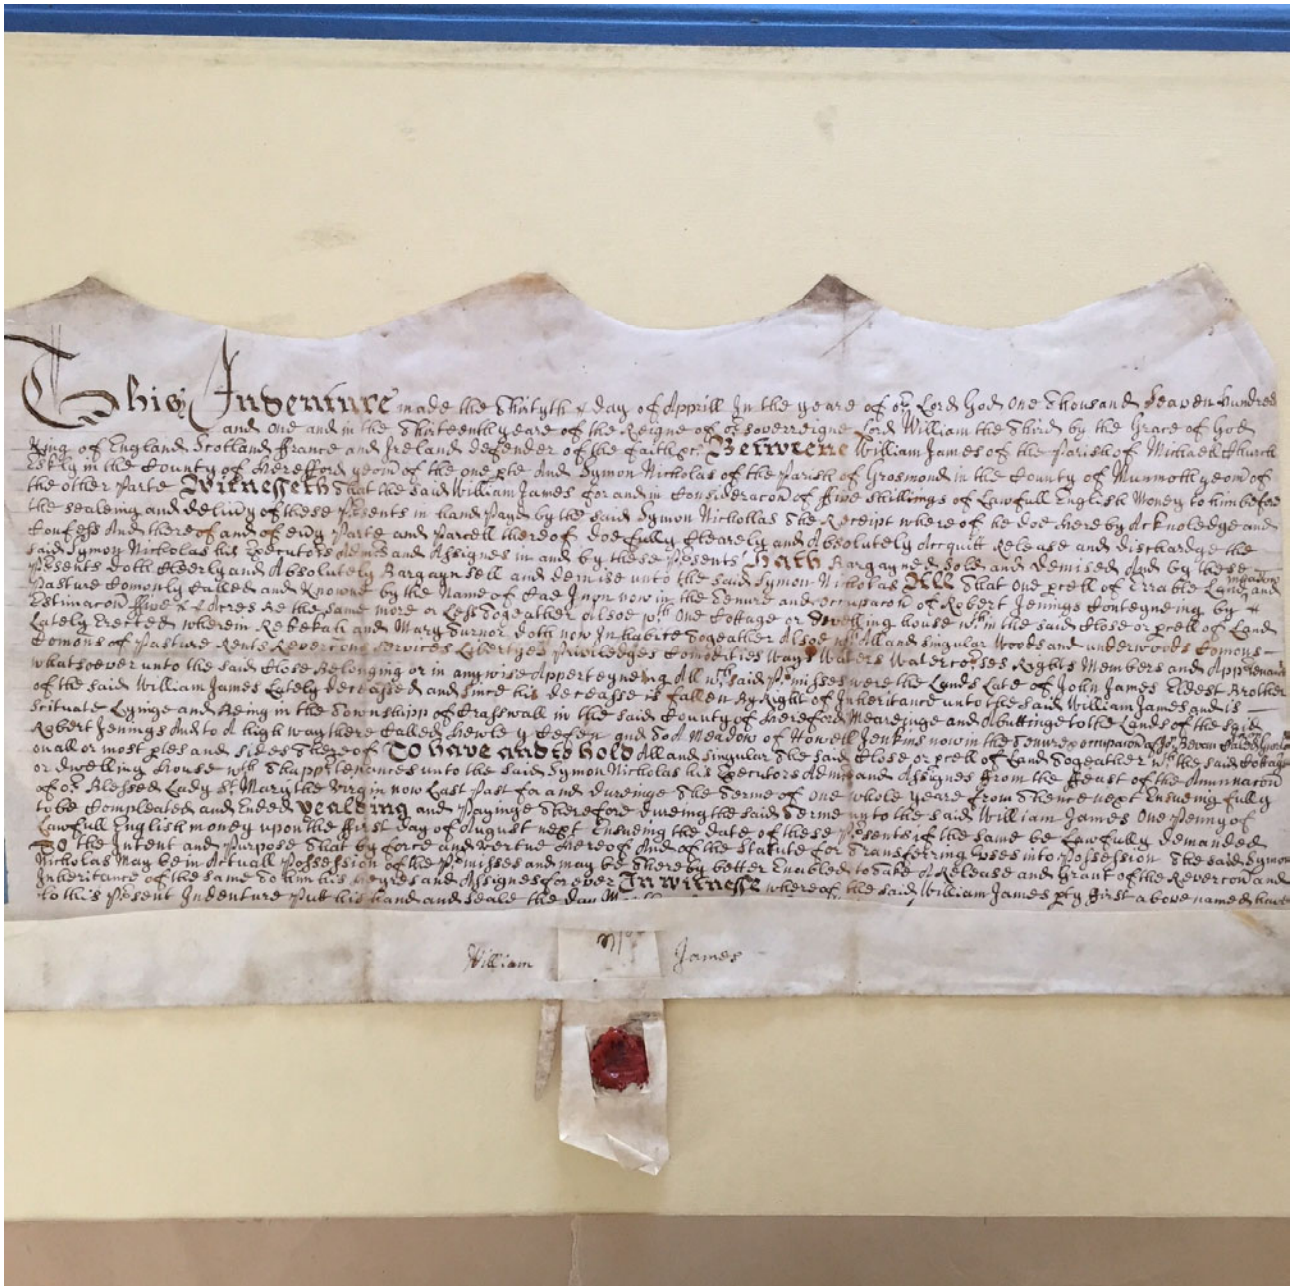 This Indenture made the Thirtyth day of Apprill In the yeare of or Lord God One Thousand Seaven Hundred
and One and in the Thirteenth yeare of the Reigne of or soverreigne Lord William the Third by the Grace of God
King of England Scotland ffrance and Ireland defender of the faith &c. Betweene William James of the Parish of Michaell Church
Eskly in the County of Herefford yeom of the one pte And Symon Nicholas of the Parish of Grosmond in the County of Munmoth yeom of
the other Parte Witnesseth That the said William James for and in Consideracon of ffive Shillings of Lawfull English Money to him before
the sealeing and delivy of these Psents in hand Payd by the said Symon Nichollas The Receipt whereof he doe hereby Acknoledge and
Confess And thereof and of evy Parte and Parcell thereof doe fully Clearely and Absolutely Accquitt Release and discharge the
said Symon Nicholas his Executors Adms and Assignes in and by these Psents Hath Bargayned sold and demised And by these
Psents doth Cleerly and Absolutely Bargayn sell and demise unto the said Symon Nicholas All That one pcell of Errable Land meadow and
Pasture Comonly Called and Knowne by the Name of Cae now in the Tenure and occupacon of Robert Jennings Conteyneing by
Estimacon ffive Acres Be the same more or Less Togeather alsoe wth One Cottage or Dwelling house wthin the said Close or pcell of Land
Lately Erected wherein Rebekah and Mary Turnor doth now Inhabite Togeather Alsoe wth All and singular Woods and underwoods Comons
Comons of Pasture Rents Revercons Services Libertyes Priviledges Comodities Ways Waters Watercorses Rights Members and Apprtenances
whatsoever unto the said Close Belonging or in anywise Apperteyneing All wch said Pmisses were the Lands Late of John James Eldest Brother
of the said William James Lately deceassed and since his deceasse is fallen By Right of Inheritance unto the said William James and is
Scituate Lyinge and Being in the Townshipp of Crasswall in the said County of Hereford Meareinge and Abuttinge to the Lands of the said
Robert Jennings And to A high way there Called and To A Meadow of Howell Jenkins now in the Tenure & occupacon of Bevan
on all or most ptes and sides Thereof To have and to hold All and singular The said Close or pcell of Land Togeather wth the said Cottage
or dwelling House wth Thapprtenances unto the said Symon Nicholas his Executors Adms and Assignes ffrom the ffeast of the Anunnacon
of or Blessed Lady St Mary the Virgin now Last Past for and dureinge The Terme of One whole yeare from Thence next Ensueing fully
to be Compleated and Ended Yealding and Payinge Therefore dureing the said Terme unto the said William James One Penny of
Lawfull English money upon the ffirst day of August next Ensueing the date of these Psents if the same be Lawfully demanded
To the Intent and Purpose That by force and vertue hereof And of the Statute for Transferring Uses into Possession The said Symon
Nicholas May be in Actuall Possession of the Pmisses and may be Thereby better Enabled to Take A Release and Grant of the Revercon and
Inheritance of the same To him his heyres and Assignes for ever In witnesse whereof the said William James pty first above named have
to this Psent Indenture Putt his hand and seale the day
William James